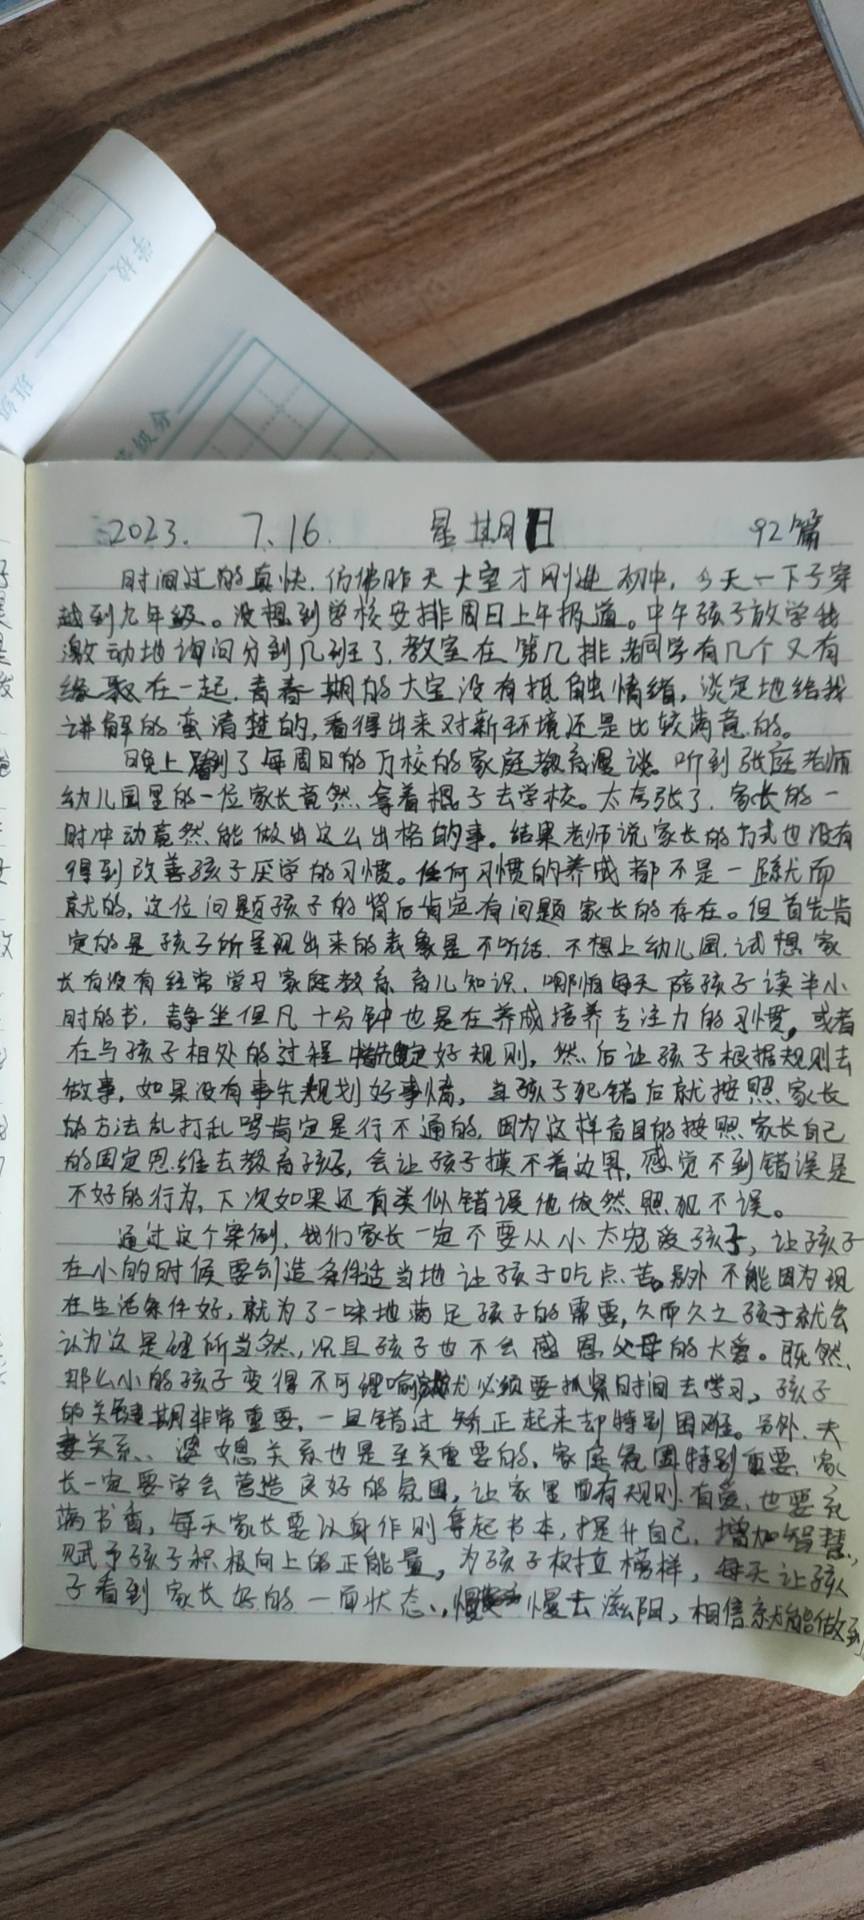 学校
班级
2023. 7.16. 星期日 92篇
时间过的真快.仿佛昨天大宝才刚进初中,今天一下子穿
越到九年级。没想到学校安排周日上午报道。中午孩子放学我
激动地询问分到几班了.教室在第几排,老同学有几个又有
缘聚在一起.青春期的大宝没有抵触情绪,淡定地给我
讲解的蛮清楚的,看得出来对新环境还是比较满意的。
晚上看到了每周日的万校的家庭教育漫谈。听到张庭老师
幼儿园里的一位家长竟然拿着棍子去学校。太夸张了.家长的一
时冲动竟然能做出这么出格的事。结果老师说家长的方式也没有
得到改善孩子厌学的习惯。任何习惯的养成都不是一蹴而
就的,这位问题孩子的背后肯定有问题家长的存在。但首先肯
定的是孩子所呈现出来的表象是不听话.不想上幼儿园.试想家
长有没有经常学习家庭教育、育儿知识.哪怕每天陪孩子读半小
时的书.静坐但凡十分钟也是在养成培养专注力的习惯,或者
在与孩子相处的过程中定好规则,然后让孩子根据规则去
做事,如果没有事先规划好事情,当孩子犯错后就按照家长
的方法乱打乱骂肯定是行不通的.因为这样盲目的按照家长自己
的固定思维去教育孩子,会让孩子摸不着边界,感觉不到错误是
不好的行为,下次如果还有类似错误他依然照犯不误。
通过这个案例,我们家长一定不要从小太宠爱孩子,让孩子
在小的时候要创造条件适当地让孩子吃点苦。另外不能因为现
在生活条件好,就为了一味地满足孩子的需要,久而久之孩子就会
认为这是理所当然,况且孩子也不会感恩父母的大爱。既然
那么小的孩子变得不可理喻就必须要抓紧时间去学习,孩子
的关键期非常重要,一旦错过矫正起来却特别困难。另外.夫
妻关系、婆媳关系也是至关重要的,家庭氛围特别重要.家
长一定要学会营造良好的氛围,让家里面有规则.有爱,也要充
满书香,每天家长要以身作则拿起书本,提升自己.增加智慧,
赋予孩子积极向上的正能量,为孩子树立榜样,每天让孩
子看到家长好的一面状态,慢慢去滋阳,相信就能做到